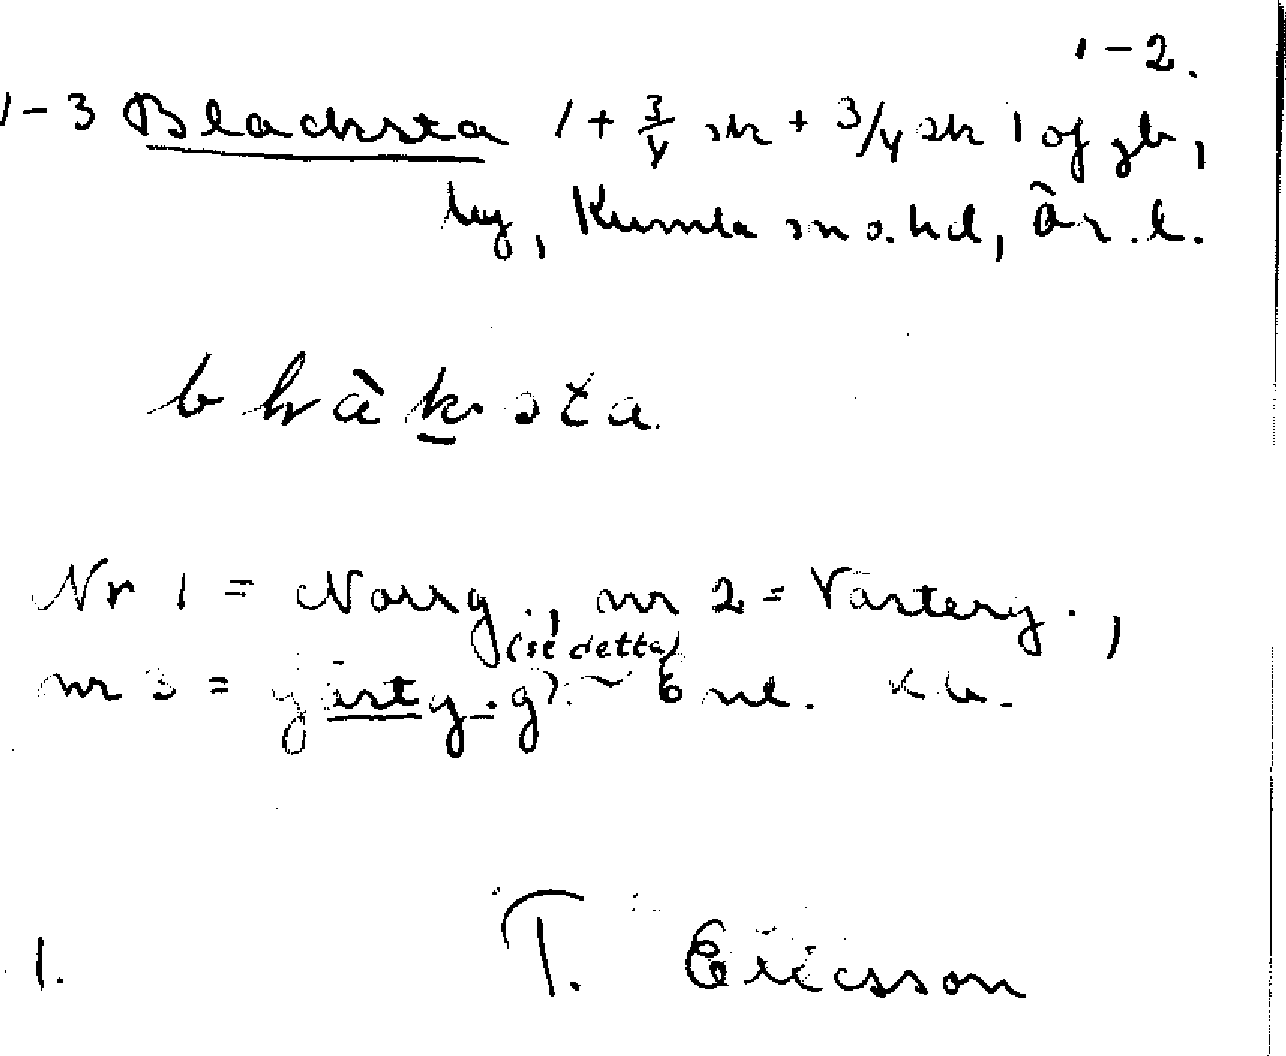 1-2.
1-3 Blacksta 1 + 3/4 sk + 3/4 sk 1 of gb,
by, Kumla sn o. hd, Ör. l.
blàksta.
Nr 1 = Norrg., nr 2 = Västerg.,
(se detta)
nr 3 = 6 nl.
1. T. Ericsson